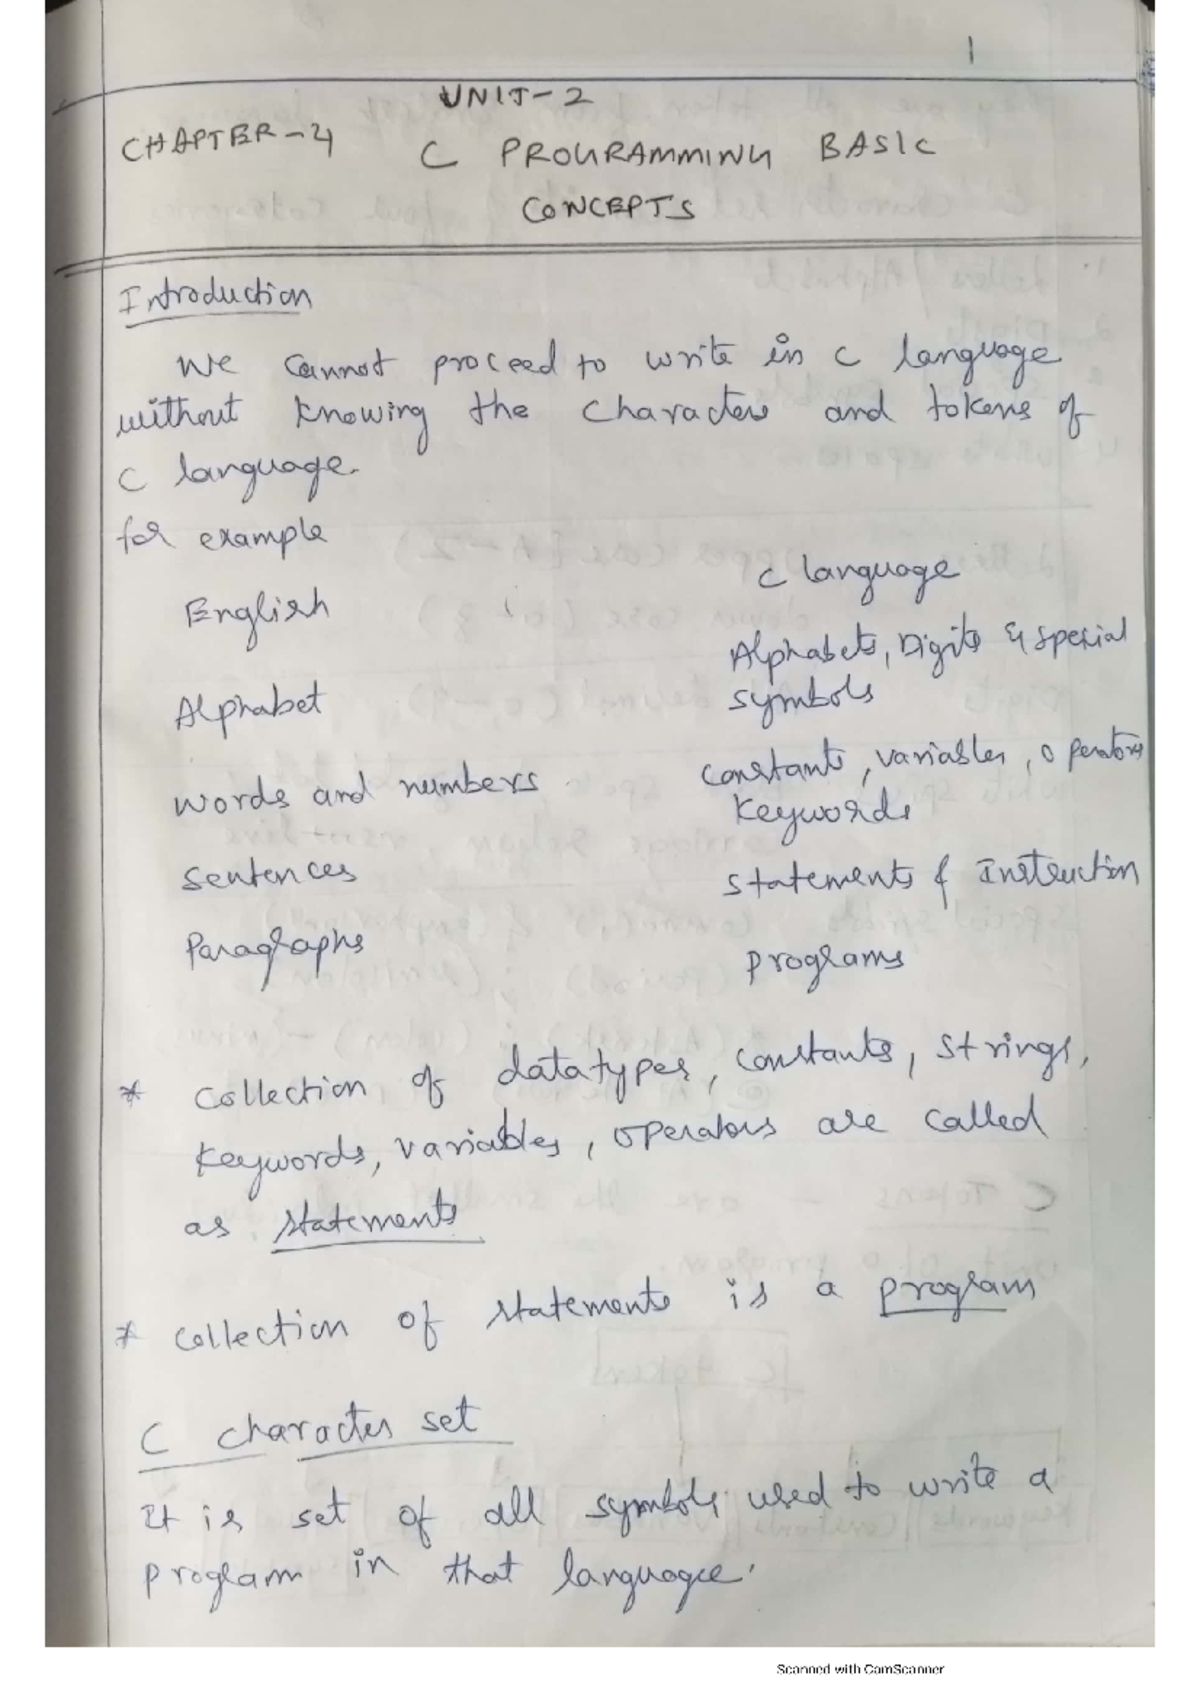 1
UNIT-2
CHAPTER-4 C PROGRAMMING BASIC
CONCEPTS
Introduction
We cannot proceed to write in C language
without knowing the characters and tokens of
C language.
for example
English C language
Alphabet Alphabets, Digits & special
symbols
words and numbers constants, variables, operators
keywords
sentences statements & Instruction
Paragraphs programs
* collection of datatypes, constants, strings,
keywords, variables, operators are called
as statements
* collection of statements is a program
C character set
It is set of all symbols used to write a
program in that language.
Scanned with CamScanner